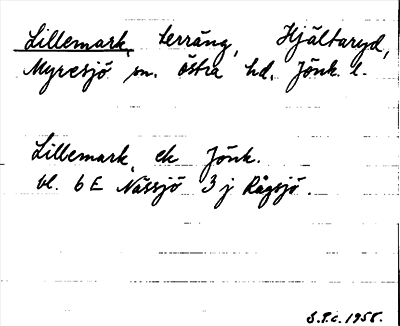 Lillemark, terräng, Hjältaryd,
Myresjö sn. Östra hd. Jönk. l.
Lillemark, ek Jönk.
bl. 6 E Nässjö 3 j Rågsjö.
S.P.C. 1958.